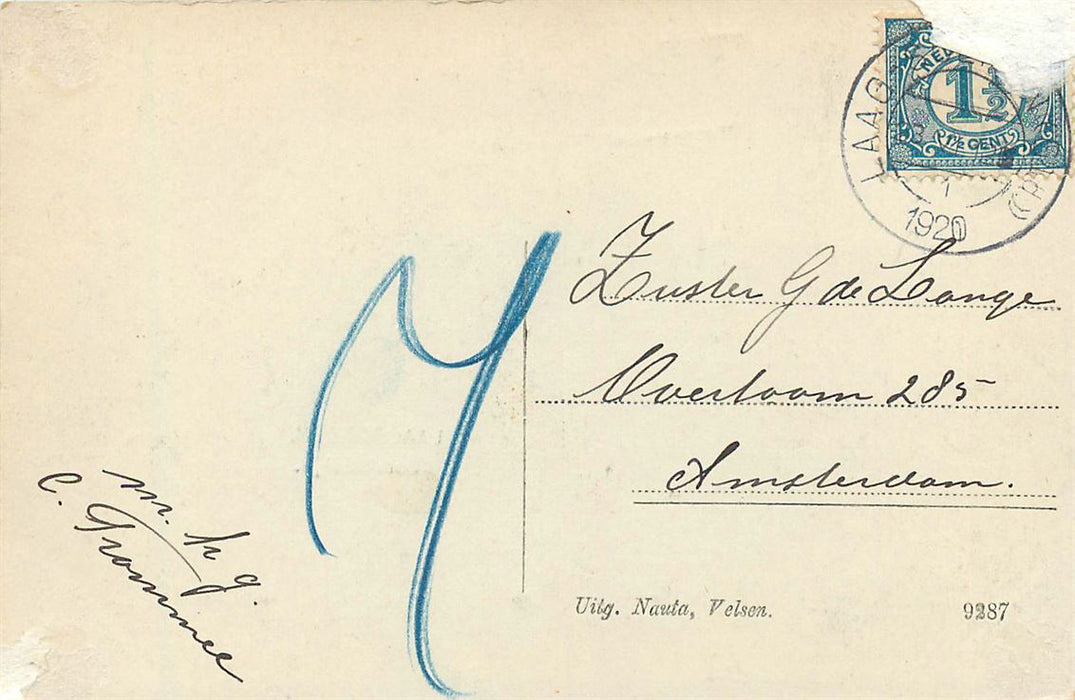 1½
1½ CENT
LAAG
1
1920
Zuster G de Lange
Overtoom 285
Amsterdam.
m. h g.
Uitg. Nauta, Velsen.
9287